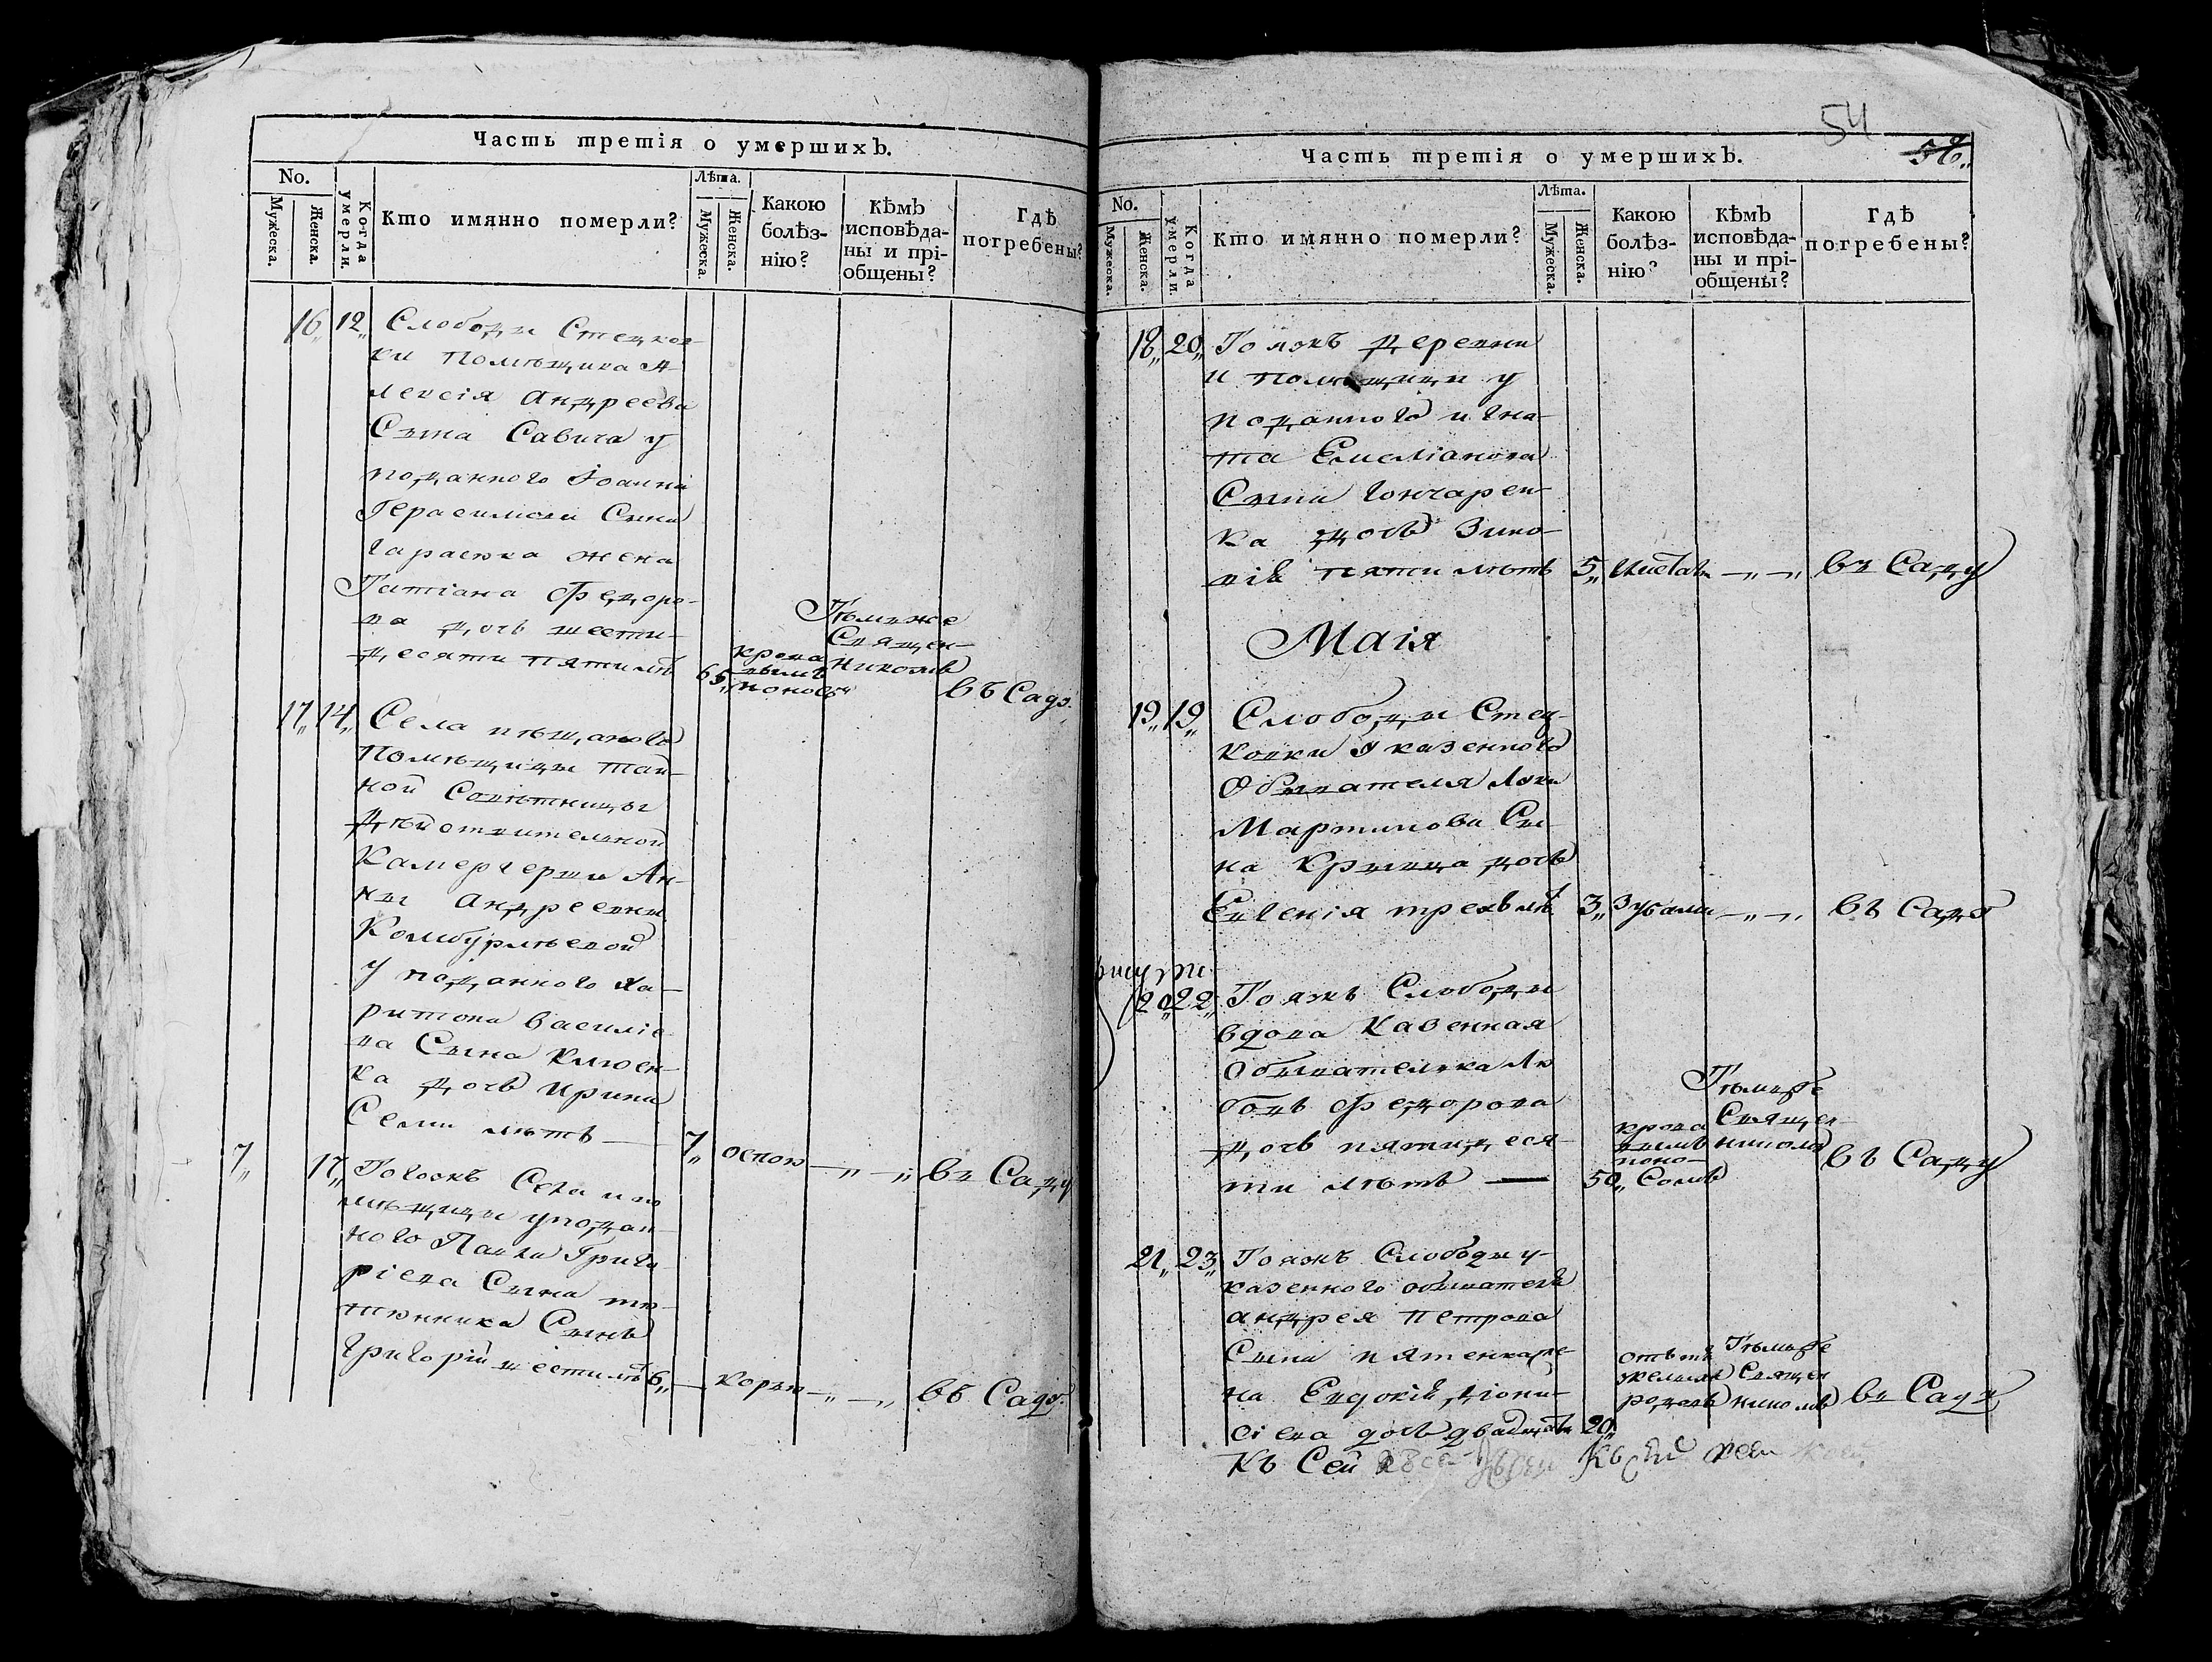 Часть третія о умершихъ.
No.
Мужеска.
Женска.
Когда умерли.
Кто имянно померли?
Лѣта.
Мужеска.
Женска.
Какою болѣз-
нію?
Кѣмъ
исповѣда-
ны и прі-
общены?
Гдѣ
погребены?
16„ 12„ Слободы Стецков-
ки Помѣщика А-
лексія Андреева
Сына Савича у
подданного Іоанна
Герасимова Сына
Тараскка жена
Татіана Федоро-
ва дочь шести-
десяти пяти лѣтъ 65„
крова
вымъ
поносъ
Тѣмъ же
Священ-
никомъ
въ Саду.
17„ 14„ Села пѣщаного
Помѣщицы тай-
ной Совѣтницы
Дѣйствительной
Камергерши Ан-
ны Андреевны
Комбурлѣевой
у подданного Ха-
ритона Василіе-
ва Сына
ка дочь Ирина
Семи лѣтъ — 7„ оспою —„—„ въ Саду
7„ 17„ Тогожъ Села и по
мѣщицы у поддан-
ного Павла Григо
ріева Сына тю-
тюнника Сынъ
Григорій шести лѣтъ 6„ — корью —„—„ въ Саду.
54
Часть третія о умершихъ.
No.
Мужеска.
Женска.
Когда умерли.
Кто имянно померли?
Лѣта.
Мужеска.
Женска.
Какою
болѣз-
нію?
Кѣмъ
исповѣда-
ны и прі-
общены?
Гдѣ
погребены?
18„ 20„ Тояжъ Деревни
и помѣщицы у
подданного игна-
та Емеліанова
Сына Гончарен-
ка дочь Зино-
вія пяти лѣтъ 5„ —„—„ въ Саду
Маія
19„ 19„ Слободы Стец-
ковки у казенного
Обывателя Луки
Мартинова Сы-
на дочь
Евгенія трехъ лѣтъ 3„ Зубами —„—„ въ Саду
20„ 22„ Тояжъ Слободы
вдова Казенная
Обывателка Лю
бовь Федорова
дочь пятидеся-
ти лѣтъ — 50„
крова
вымъ
поно-
Сомъ
Тѣмъже
Священ-
никомъ
въ Саду
21„ 23„ Тояжъ Слободы у-
казенного обывателя
андрея петрова
Сына
на Евдокія діони-
сіева дочь двадцать 20„
Тѣмъже
Священ
никомъ
въ Саду
Къ Сей